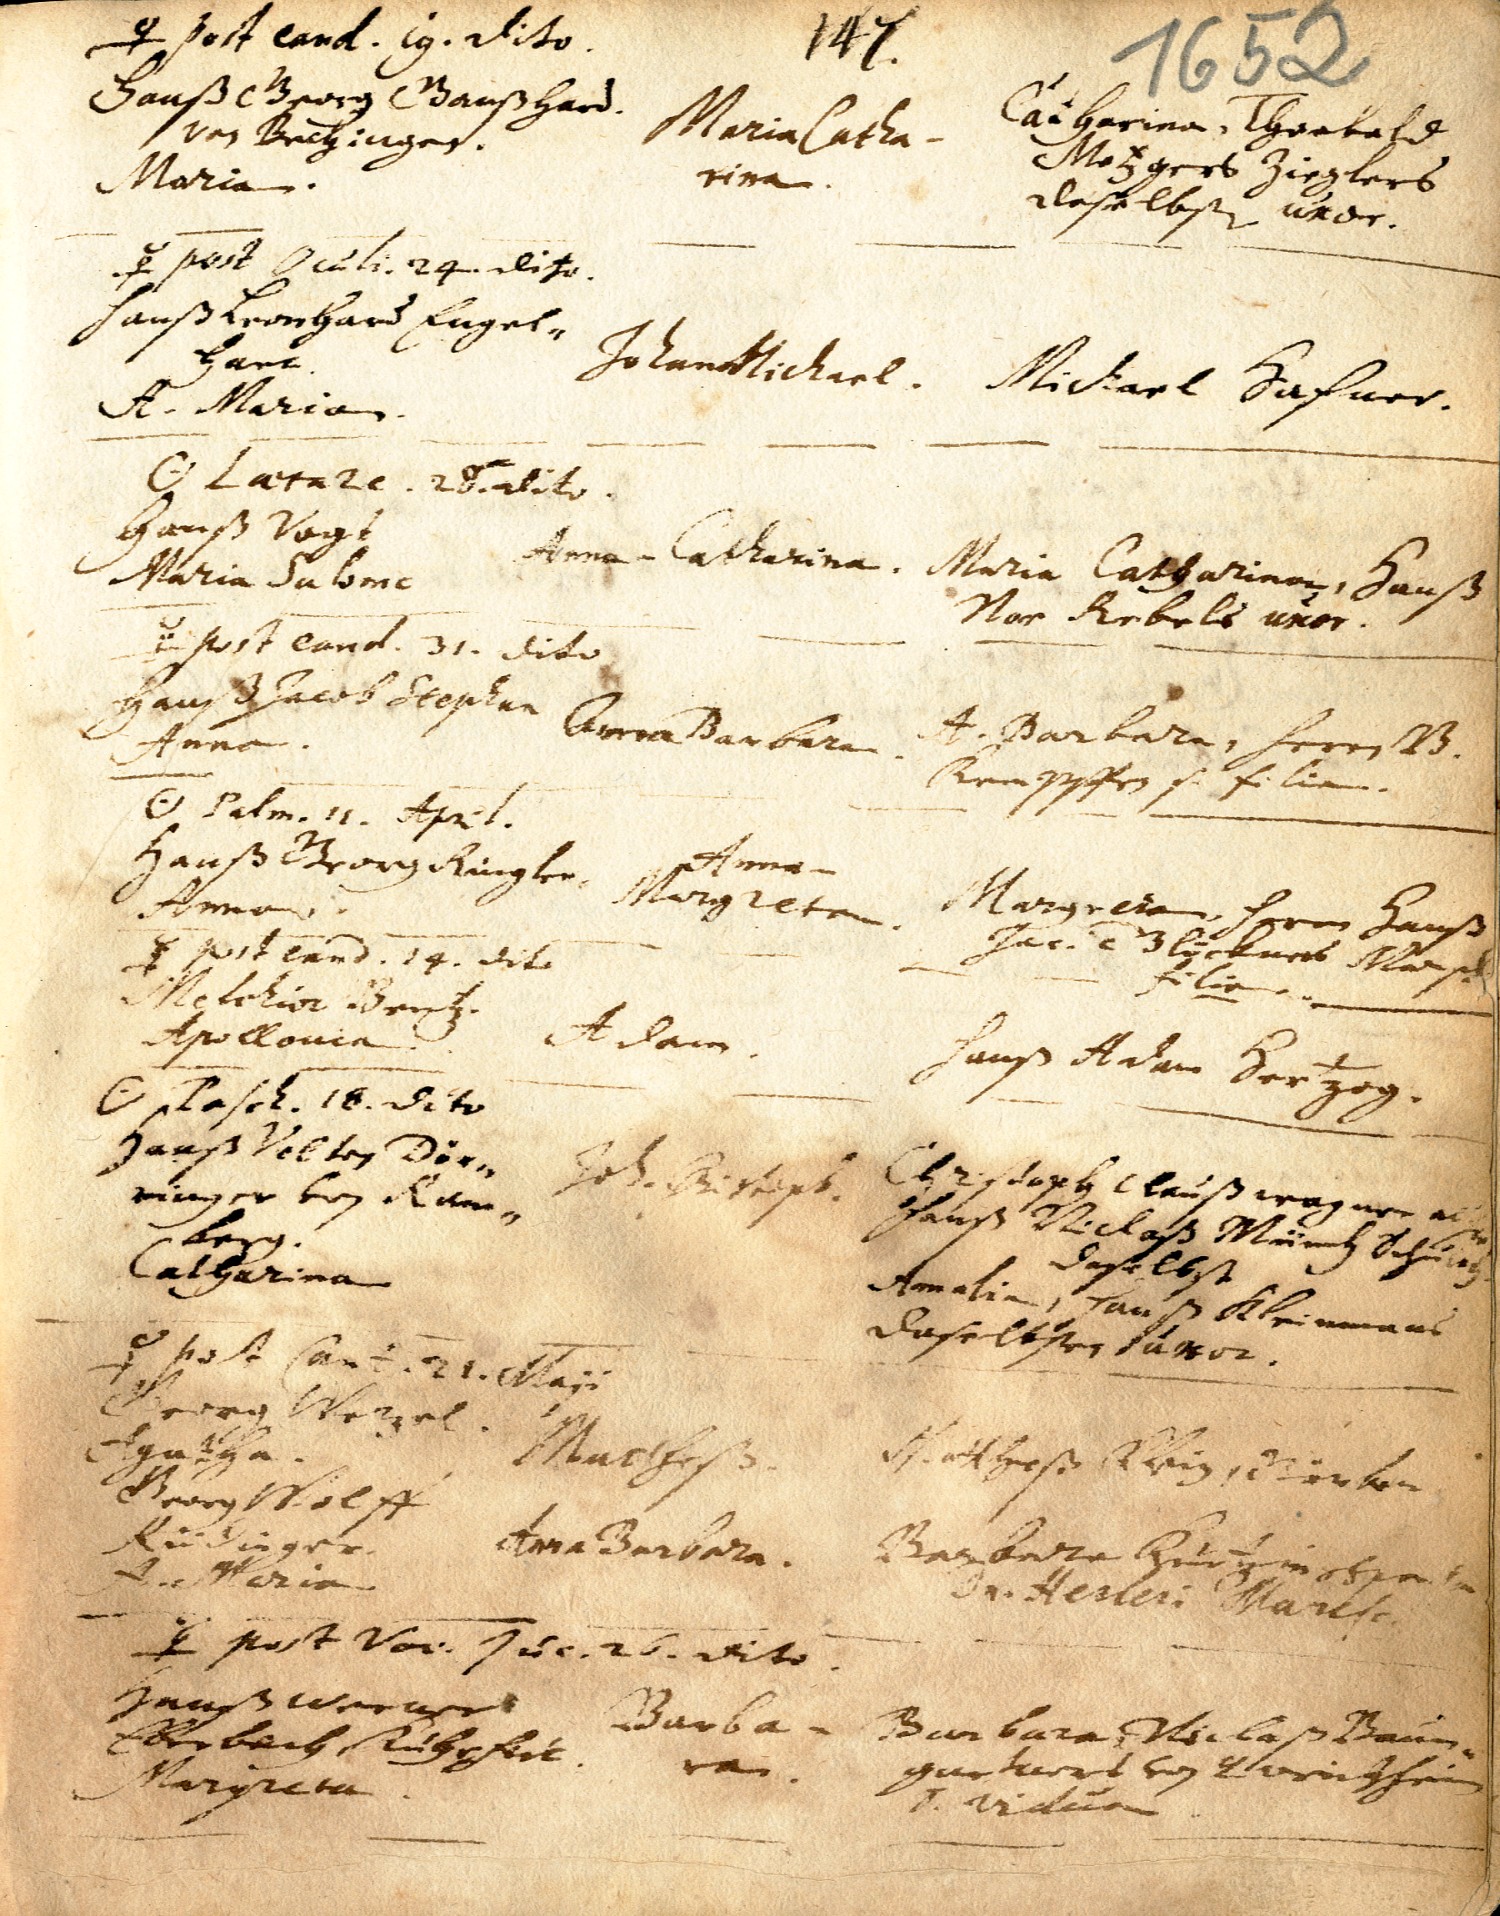 147.
1652
☿ post eand. 19. dito.
Hanß Georg Banßhard.
von Bectzingen.
Maria.
Maria Catha-
rina.
Catharina, Theobald
Metzgers Zieglers
daselbst uxor.
☿ post Oculi. 24. dito.
Hanß Leonhard Engel=
hart.
A. Maria.
Johann Michael.
Michael Hafner.
☉ Laetare. 28. dito.
Hanß Vogt
Maria Salome
Anna-Catharina.
Maria Catharina, Hanß
Rebels uxor.
☿ post eand. 31. dito
Hanß Jacob Stephan
Anna.
Anna Barbara.
A. Barbara, Herrn B.
filia.
☉ Palm. 11. April.
Hanß Georg Ringler.
Anna.
Anna-
Margreta.
Margreta, Herrn Hanß
Jac. Glöckners
filia.
☿ post eand. 14. dito
Melchior Bentz.
Apollonia.
Adam.
Hanß Adam Hertzog.
☉ Pasch. 18. dito
Hanß Velten Dör=
ringer von Ram=
berg.
Catharina
Joh. Christoph.
Christoph Clauß wagner
Hanß Niclaß Münch
daselbst
Amelia, Hanß Kleinmans
daselbsten uxor.
☿ post Cant. 21. Maji
Georg Wetzel.
Agatha.
Mattheß.
Mattheß Klein,
Georg Wolff
Rüdinger.
A. Maria
Anna Barbara.
Barbara
Dn. Hesleri
☿ post Voc. Juc. 26. dito.
Hanß Werner
Eberbach
Margreta.
Barba-
ra.
Barbara, Niclaß Baum=
gartners von
s. vidua